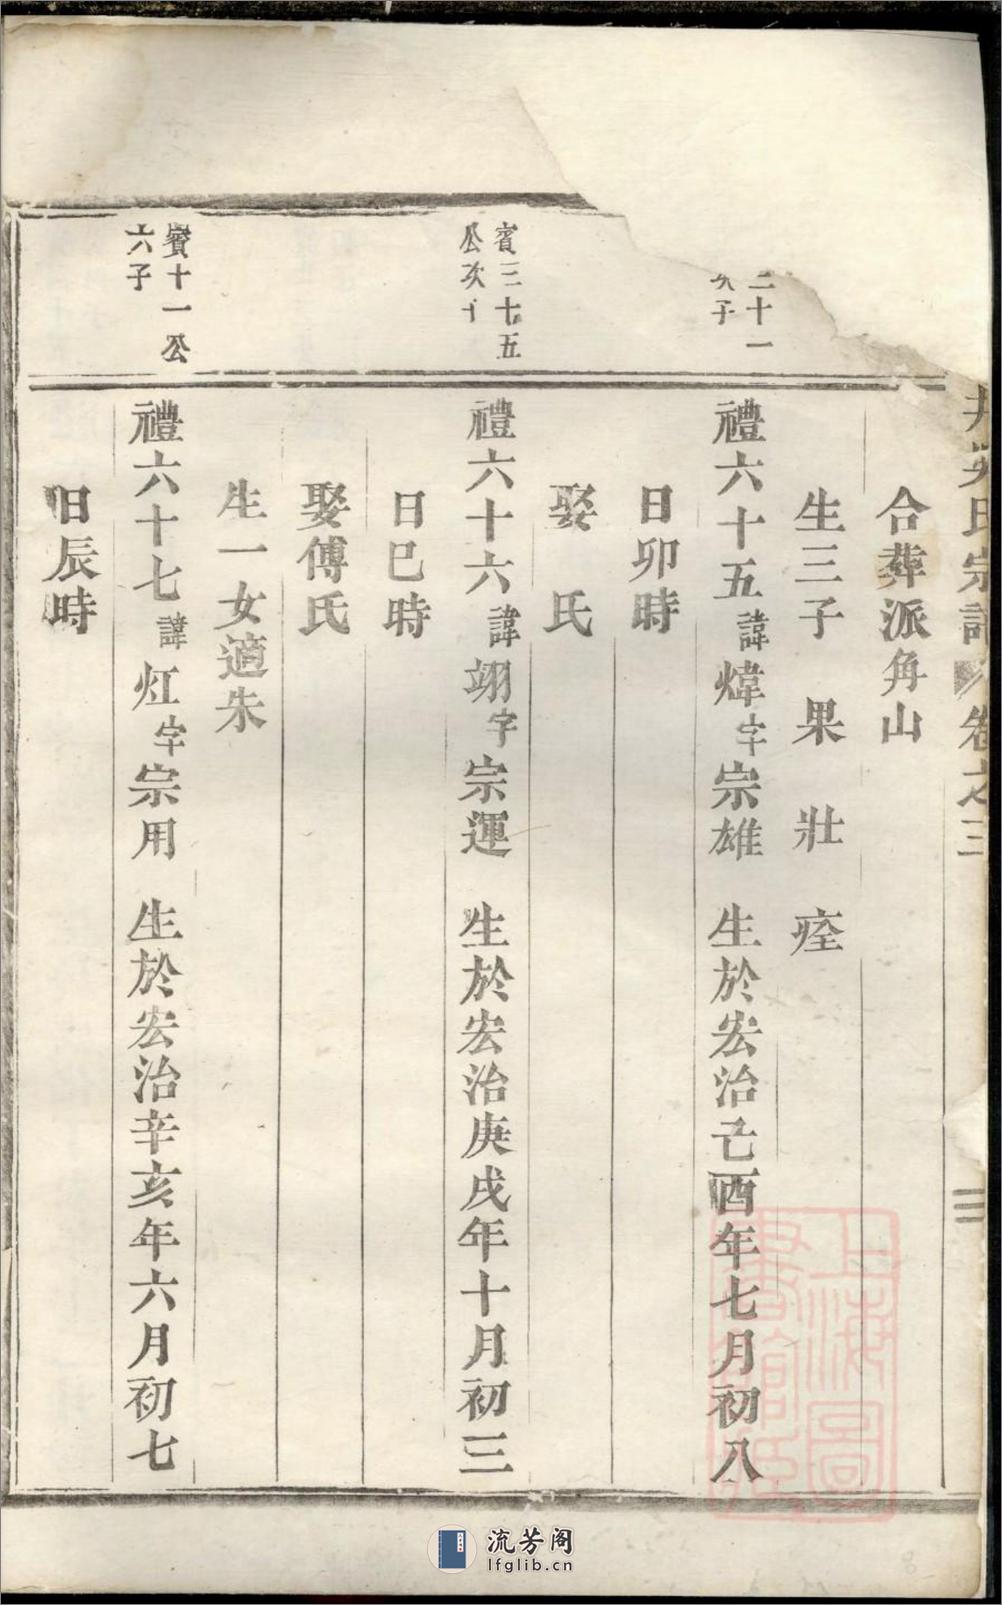 氏宗譜 卷之三
合葬派角山
生三子 果 壯 痊
二十一
次子
禮六十五諱煒字宗雄 生於宏治己酉年七月初八
日卯時
娶 氏
賓三十五
公次子
禮六十六諱翊字宗運 生於宏治庚戌年十月初三
日巳時
娶傅氏
生一女適朱
賓十一公
六子
禮六十七諱灴字宗用 生於宏治辛亥年六月初七
日辰時
上海圖
書館藏
流芳阁
lfglib.cn